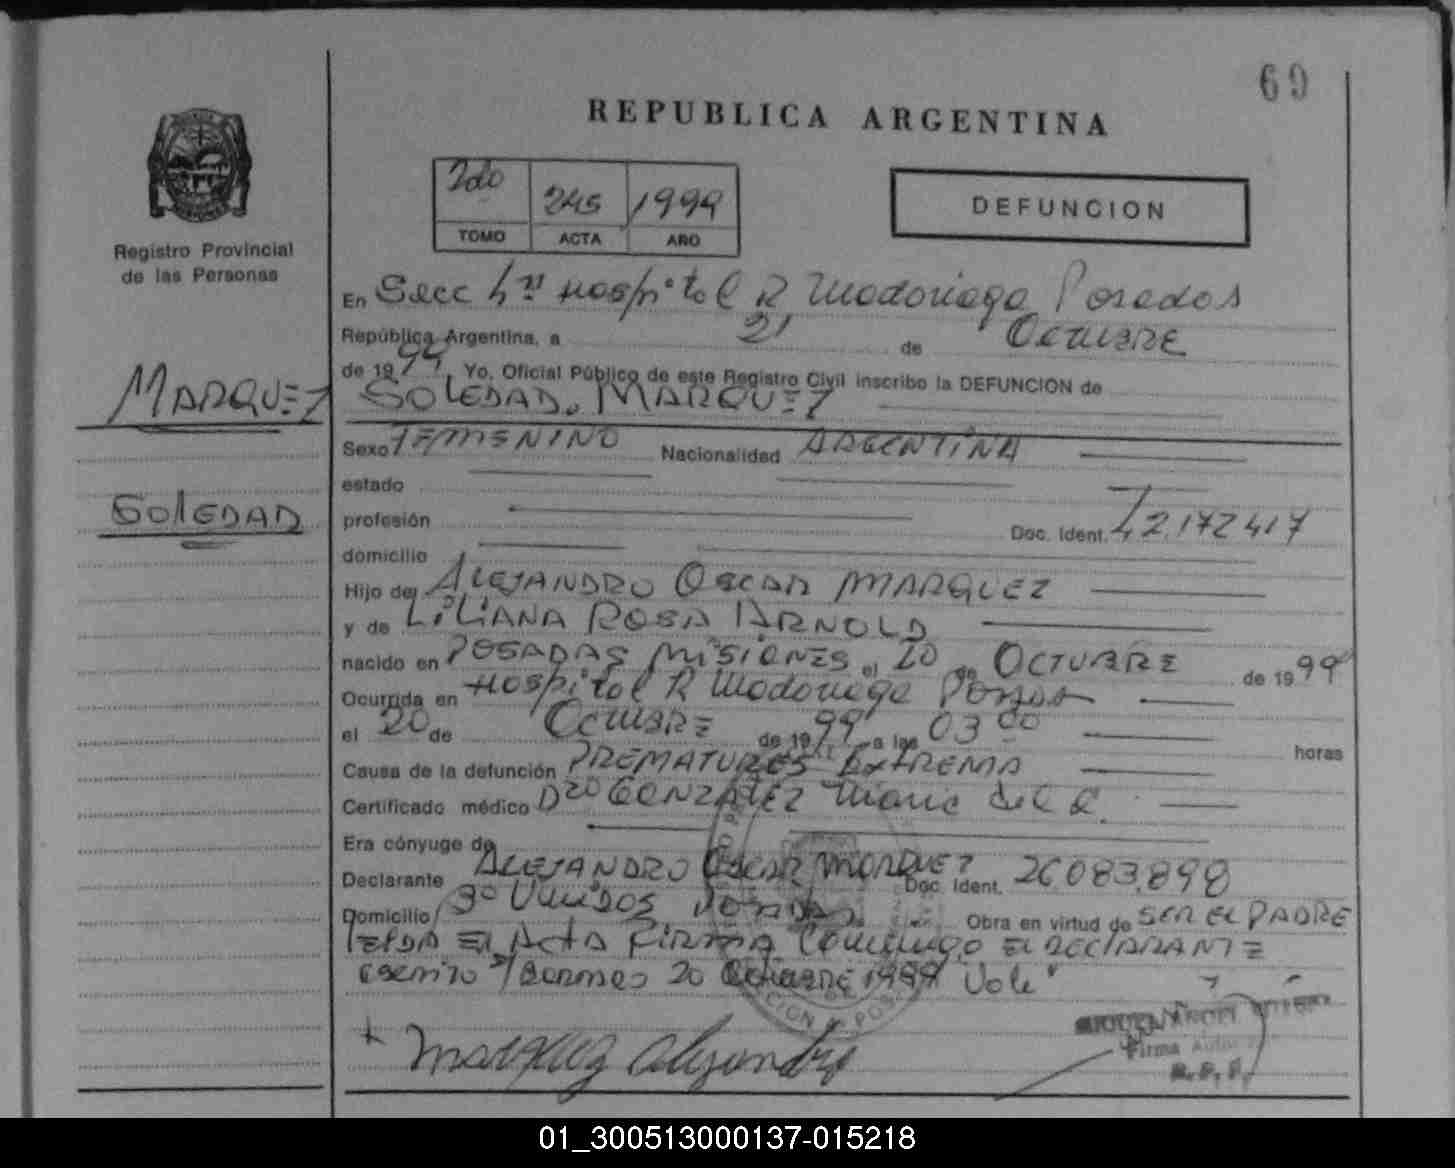 69
REPUBLICA ARGENTINA
Registro Provincial
de las Personas
2do 245 1999
TOMO ACTA AÑO
DEFUNCION
En Secc 4ta Hospital R Madariaga Posadas
República Argentina, a 21 de Octubre
de 1999, Yo, Oficial Público de este Registro Civil inscribo la DEFUNCION de
MARQUEZ
SOLEDAD, MARQUEZ
Sexo FEMENINO Nacionalidad ARGENTINA
estado
SOLEDAD
profesión Doc. Ident. 42.172417
domicilio
Hijo de ALEJANDRO OSCAR MARQUEZ
y de LILIANA ROSA ARNOLD
nacido en POSADAS MISIONES el 20 de OCTUBRE de 1999
Ocurrida en Hospital R Madariaga Posadas
el 20 de OCTUBRE de 1999 a las 03 00 horas
Causa de la defunción PREMATURES EXTREMA
Certificado médico Dra GONZALEZ Maria del C.
Era cónyuge de
Declarante ALEJANDRO OSCAR MARQUEZ Doc. Ident. 26083.898
Domicilio Unidos POSADAS Obra en virtud de SER EL PADRE
LEIDA EL ACTA FIRMA Conmigo EL DECLARANTE
escrito s/ 20 Octubre 1999 Vale"
Marquez Alejandro
Firma
R. P. P.
01_300513000137-015218